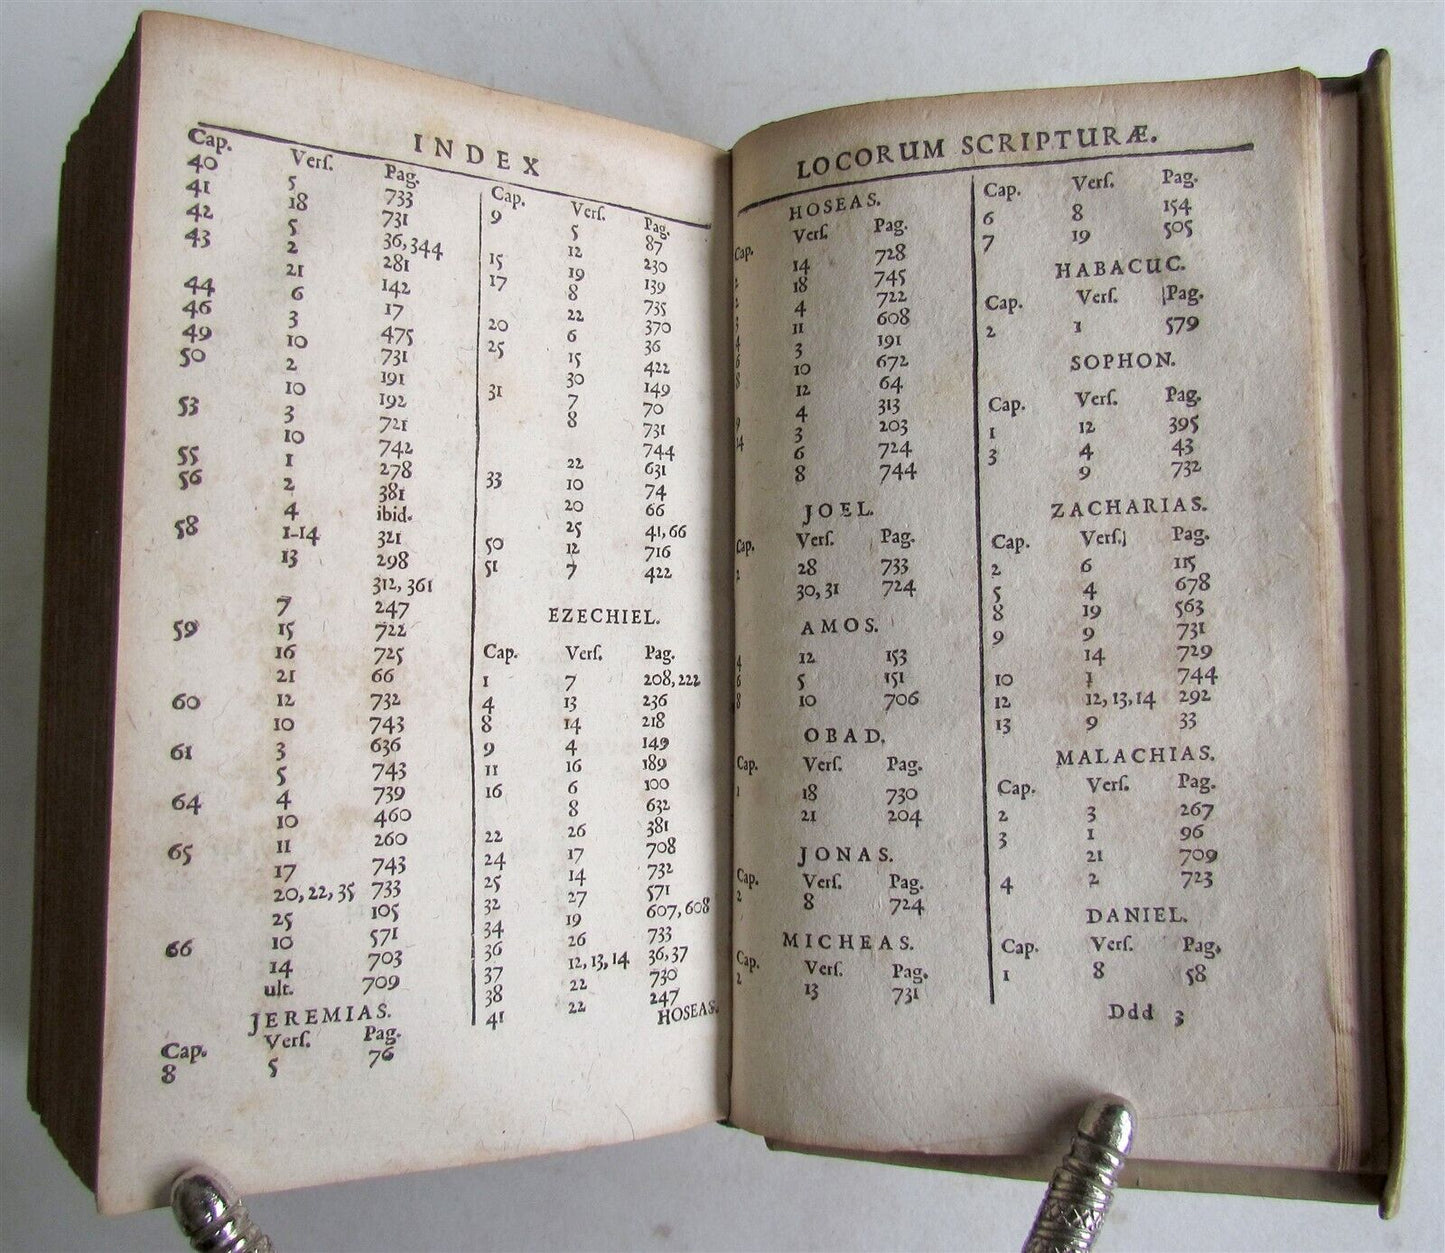 INDEX
Cap. Verſ. Pag.
40 5 733
41 18 731
42 5 36, 344
43 2 281
21 142
44 6 17
46 3 475
49 10 731
50 2 191
10 192
53 3 721
10 742
55 1 278
56 2 381
4 ibid.
58 1-14 321
13 298
312, 361
7 247
59 15 722
16 725
21 66
60 12 732
10 743
61 3 636
5 743
64 4 739
10 460
65 11 260
17 743
20, 22, 35 733
25 105
66 10 571
14 703
ult. 709
JEREMIAS.
Cap. Verſ. Pag.
8 5 76
Cap. Verſ. Pag.
9 5 87
12 230
15 19 139
17 8 735
22 370
20 6 36
25 15 422
30 149
31 7 70
8 731
744
22 631
33 10 74
20 66
25 41, 66
50 12 716
51 7 422
EZECHIEL.
Cap. Verſ. Pag.
1 7 208, 222
4 13 236
8 14 218
9 4 149
11 16 189
16 6 100
8 632
22 26 381
24 17 708
25 14 732
32 27 571
34 19 607, 608
36 26 733
37 12, 13, 14 36, 37
38 22 730
41 22 247
HOSEAS.
LOCORUM SCRIPTURÆ.
HOSEAS.
Cap. Verſ. Pag.
14 728
18 745
4 722
11 608
3 191
10 672
12 64
4 313
3 203
6 724
8 744
JOEL.
Cap. Verſ. Pag.
2 28 733
30, 31 724
AMOS.
4 12 153
6 5 151
8 10 706
OBAD.
Cap. Verſ. Pag.
1 18 730
21 204
JONAS.
Cap. Verſ. Pag.
2 8 724
MICHEAS.
Cap. Verſ. Pag.
2 13 731
Cap. Verſ. Pag.
6 8 154
7 19 505
HABACUC.
Cap. Verſ. Pag.
2 1 579
SOPHON.
Cap. Verſ. Pag.
1 12 395
3 4 43
9 732
ZACHARIAS.
Cap. Verſ. Pag.
2 6 115
5 4 678
8 19 563
9 9 731
14 729
10 1 744
12 12, 13, 14 292
13 9 33
MALACHIAS.
Cap. Verſ. Pag.
2 3 267
3 1 96
21 709
4 2 723
DANIEL.
Cap. Verſ. Pag.
1 8 58
Ddd 3